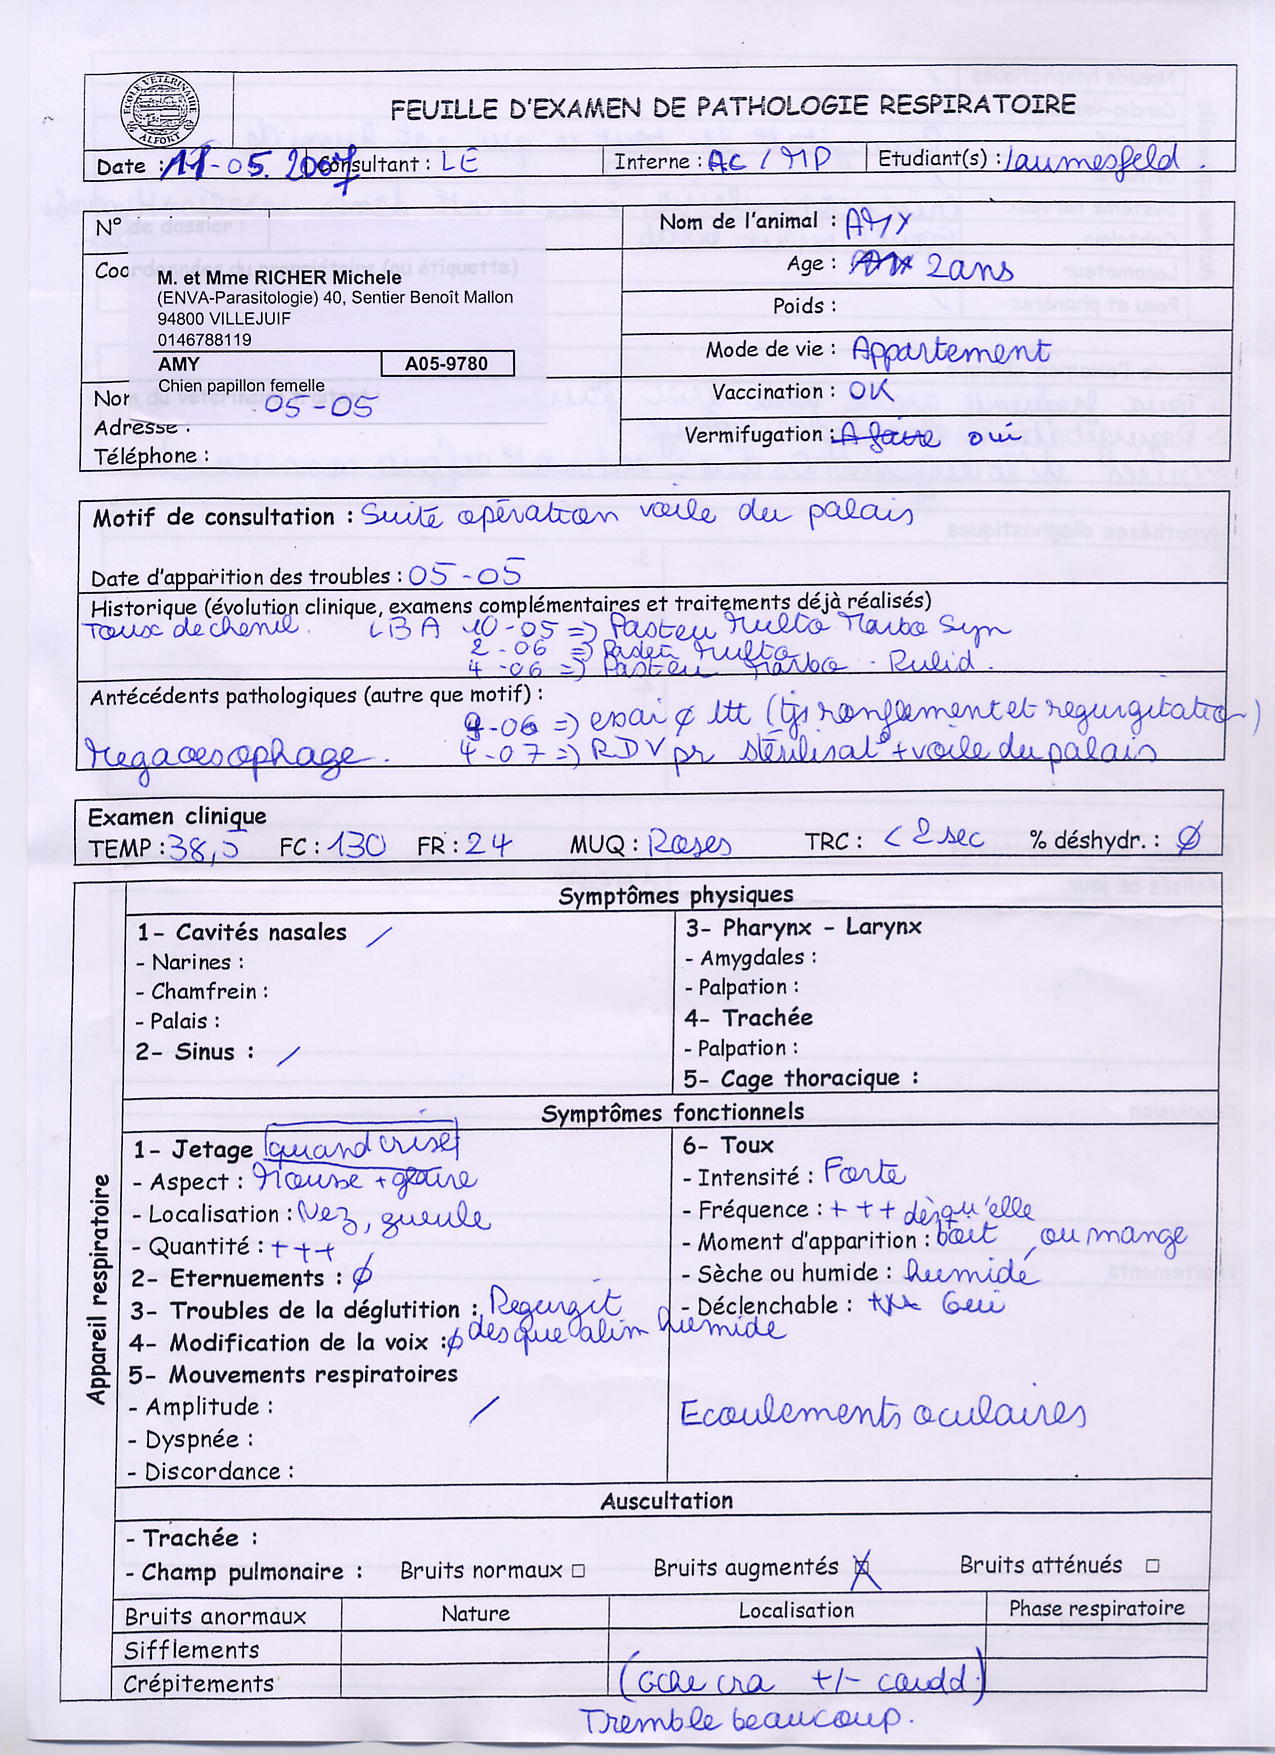 ECOLE VETERINAIRE ALFORT
FEUILLE D'EXAMEN DE PATHOLOGIE RESPIRATOIRE
Date : 11-05.2007 Consultant : LE Interne : AC / MP Etudiant(s) : Laumesfeld
N°
Coo
M. et Mme RICHER Michele
(ENVA-Parasitologie) 40, Sentier Benoît Mallon
94800 VILLEJUIF
0146788119
AMY A05-9780
Chien papillon femelle
05-05
Nor
Adresse :
Téléphone :
Nom de l'animal : AMY
Age : 2ans
Poids :
Mode de vie : Appartement
Vaccination : OK
Vermifugation : A faire oui
Motif de consultation : Suite opération voile du palais
Date d'apparition des troubles : 05-05
Historique (évolution clinique, examens complémentaires et traitements déjà réalisés)
Toux de chenil. LBA 10-05 => Pasteu Multo Marbo Syn
2-06 => Pasteu Multo
4-06 => Pasteu Marbo - Rulid.
Antécédents pathologiques (autre que motif) :
9-06 => essai ∅ ttt (tjs ronflement et regurgitation)
Megaoesophage. 4-07 => RDV pr stérilisat° + voile du palais
Examen clinique
TEMP : 38,5 FC : 130 FR : 24 MUQ : Roses TRC : < 2 sec % déshydr. : ∅
Appareil respiratoire
Symptômes physiques
1- Cavités nasales /
- Narines :
- Chamfrein :
- Palais :
2- Sinus : /
3- Pharynx - Larynx
- Amygdales :
- Palpation :
4- Trachée
- Palpation :
5- Cage thoracique :
Symptômes fonctionnels
1- Jetage quand crise
- Aspect : Mousse + glaire
- Localisation : Nez, gueule
- Quantité : +++
2- Eternuements : ∅
3- Troubles de la déglutition : Regurgit
des que alim humide
4- Modification de la voix : ∅
5- Mouvements respiratoires
- Amplitude : /
- Dyspnée :
- Discordance :
6- Toux
- Intensité : Forte
- Fréquence : +++ dès qu'elle
- Moment d'apparition : boit, ou mange
- Sèche ou humide : humide
- Déclenchable : Oui
Ecoulements oculaires
Auscultation
- Trachée :
- Champ pulmonaire : Bruits normaux □ Bruits augmentés ☒ Bruits atténués □
Bruits anormaux Nature Localisation Phase respiratoire
Sifflements
Crépitements (Gche cra +/- caudd)
Tremble beaucoup.